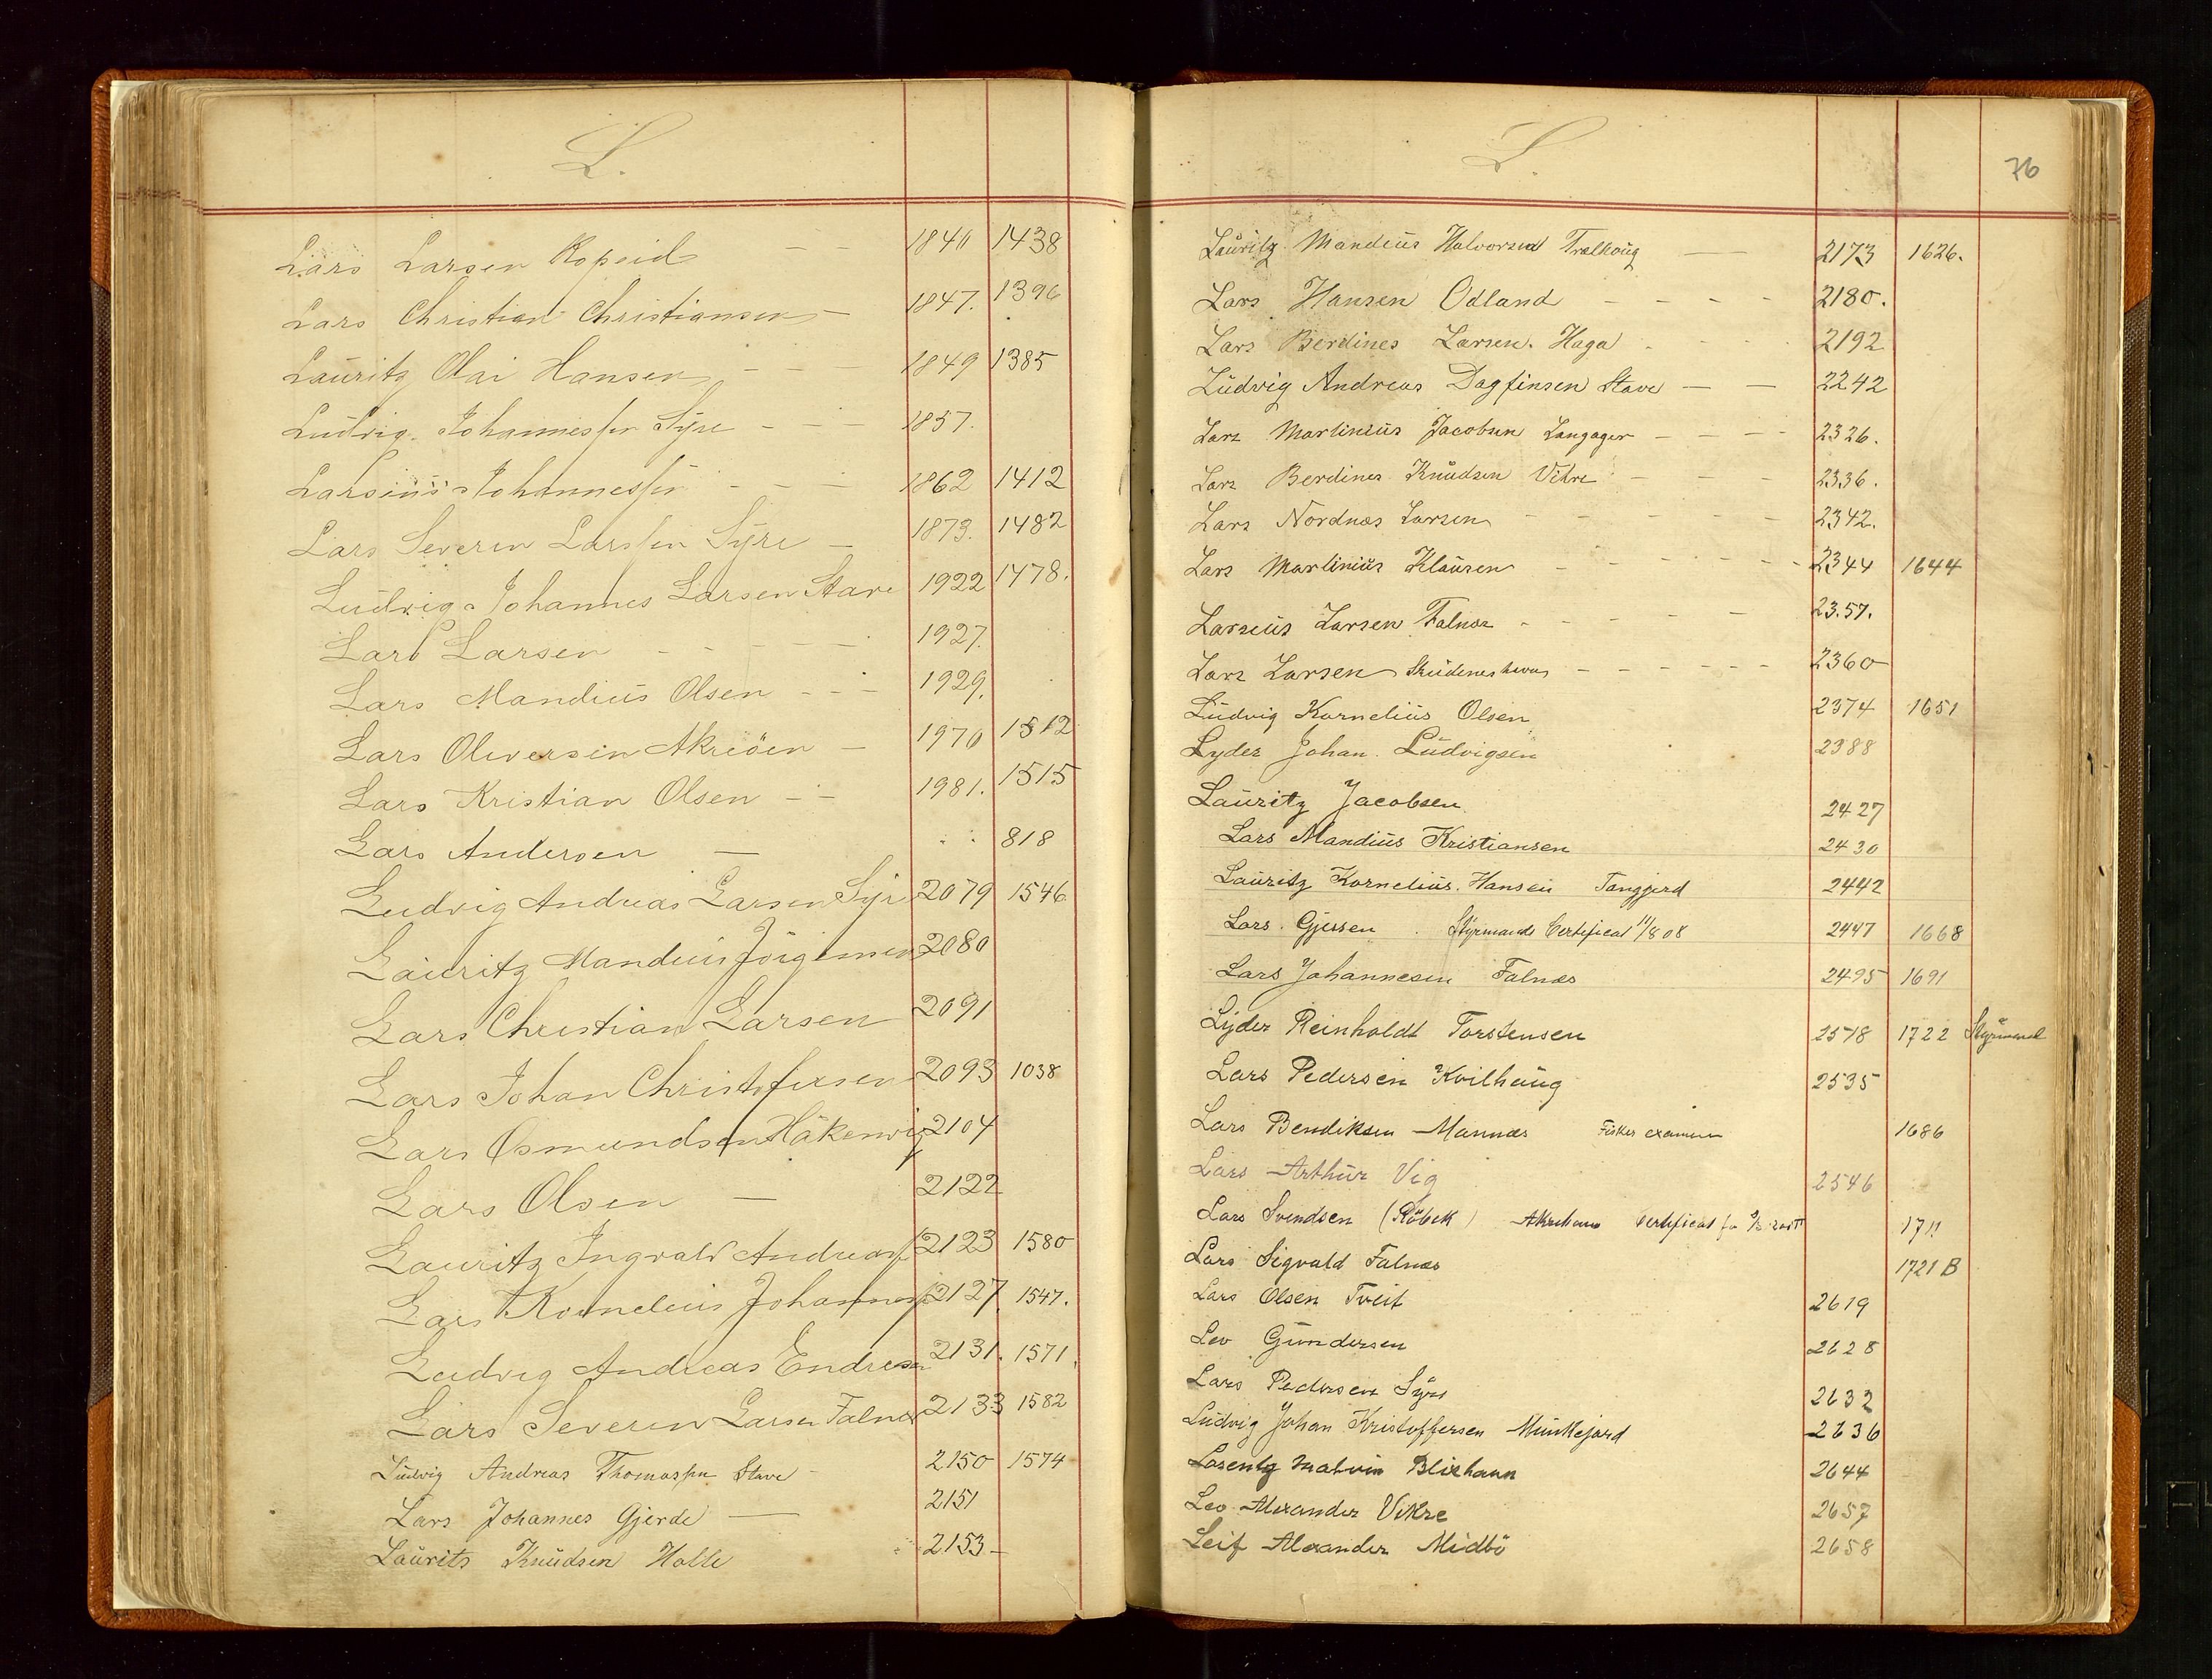 L.
Lars Larsen Ropeid — — 1840 1438
Lars Christian Christiansen — 1847. 1396
Lauritz Olai Hansen - - - 1849 1385
Ludvig Johannessen Syre - - - 1857.
Larsinus Johannessen - - - 1862 1412
Lars Severin Larssen Syre — 1873. 1482
Ludvig Johannes Larsen Stave 1922 1478.
Lars Larsen - - - - - 1927.
Lars Mandius Olsen - - - 1929.
Lars Oliversen Akreöen — 1970 1512
Lars Kristian Olsen - - 1981. 1515
Lars Andersen — 818
Ludvig Andreas Larsen Syr 2079 1546
Lauritz Mandius Jörgensen 2080
Lars Christian Larsen 2091
Lars Johan Christofersen 2093 1038
Lars Osmundsen Håkenvig 2104
Lars Olsen — 2122
Lauritz Ingvald Andreass 2123 1580
Lars Kornelius Johanness 2127 1547.
Ludvig Andreas Endresen 2131. 1571.
Lars Severin Larsen Falnes 2133 1582
Ludvig Andreas Thomassen Stave - 2150 1574
Lars Johannes Gjerde — 2151
Laurits Knudsen Halle 2153 -
L.
76
Lauritz Mandius Halvorsen Trælhaug — — 2173 1626.
Lars Hansen Odland - - - - 2180.
Lars Berdines Larsen Haga - - - 2192
Ludvig Andreas Dagfinsen Stave — — 2242
Lars Martinius Jacobsen Langager - - - - 2326.
Lars Berdines Knudsen Vikre - - - 2336.
Lars Nordnæs Larsen - - - - - 2342.
Lars Martinius Klausen - - - - - 2344 1644
Larseus Larsen Falnes - - - - - 23.57.
Lars Larsen Skudeneshavn - - - - - - 2360
Ludvig Kornelius Olsen 2374 1651
Lyder Johan Ludvigsen 2388
Lauritz Jacobsen 2427
Lars Mandius Kristiansen 2430
Lauritz Kornelius Hansen Tanggjerd 2442
Lars Gjessen . Styrmands Certificat 11/8 08 2447 1668
Lars Johannesen Falnes 2495 1691
Lyder Reinholdt Torstensen 2518 1722 Styrmand
Lars Pedersen Kvilhaug 2535
Lars Bendiksen Mannes Fisker examen 1686
Lars Arthur Vig 2546
Lars Svendsen (Röbek) Akrehavn Certificat 1711
Lars Sigvald Falnes 1721 B
Lars Olsen Tveit 2619
Lev Gundersen 2628
Lars Pedersen Syre 2632
Ludvig Johan Kristoffersen Munkejord 2636
Lorentz Malvin Blixhavn 2644
Leo Alexander Vikre 2657
Leif Alexander Midbö 2658